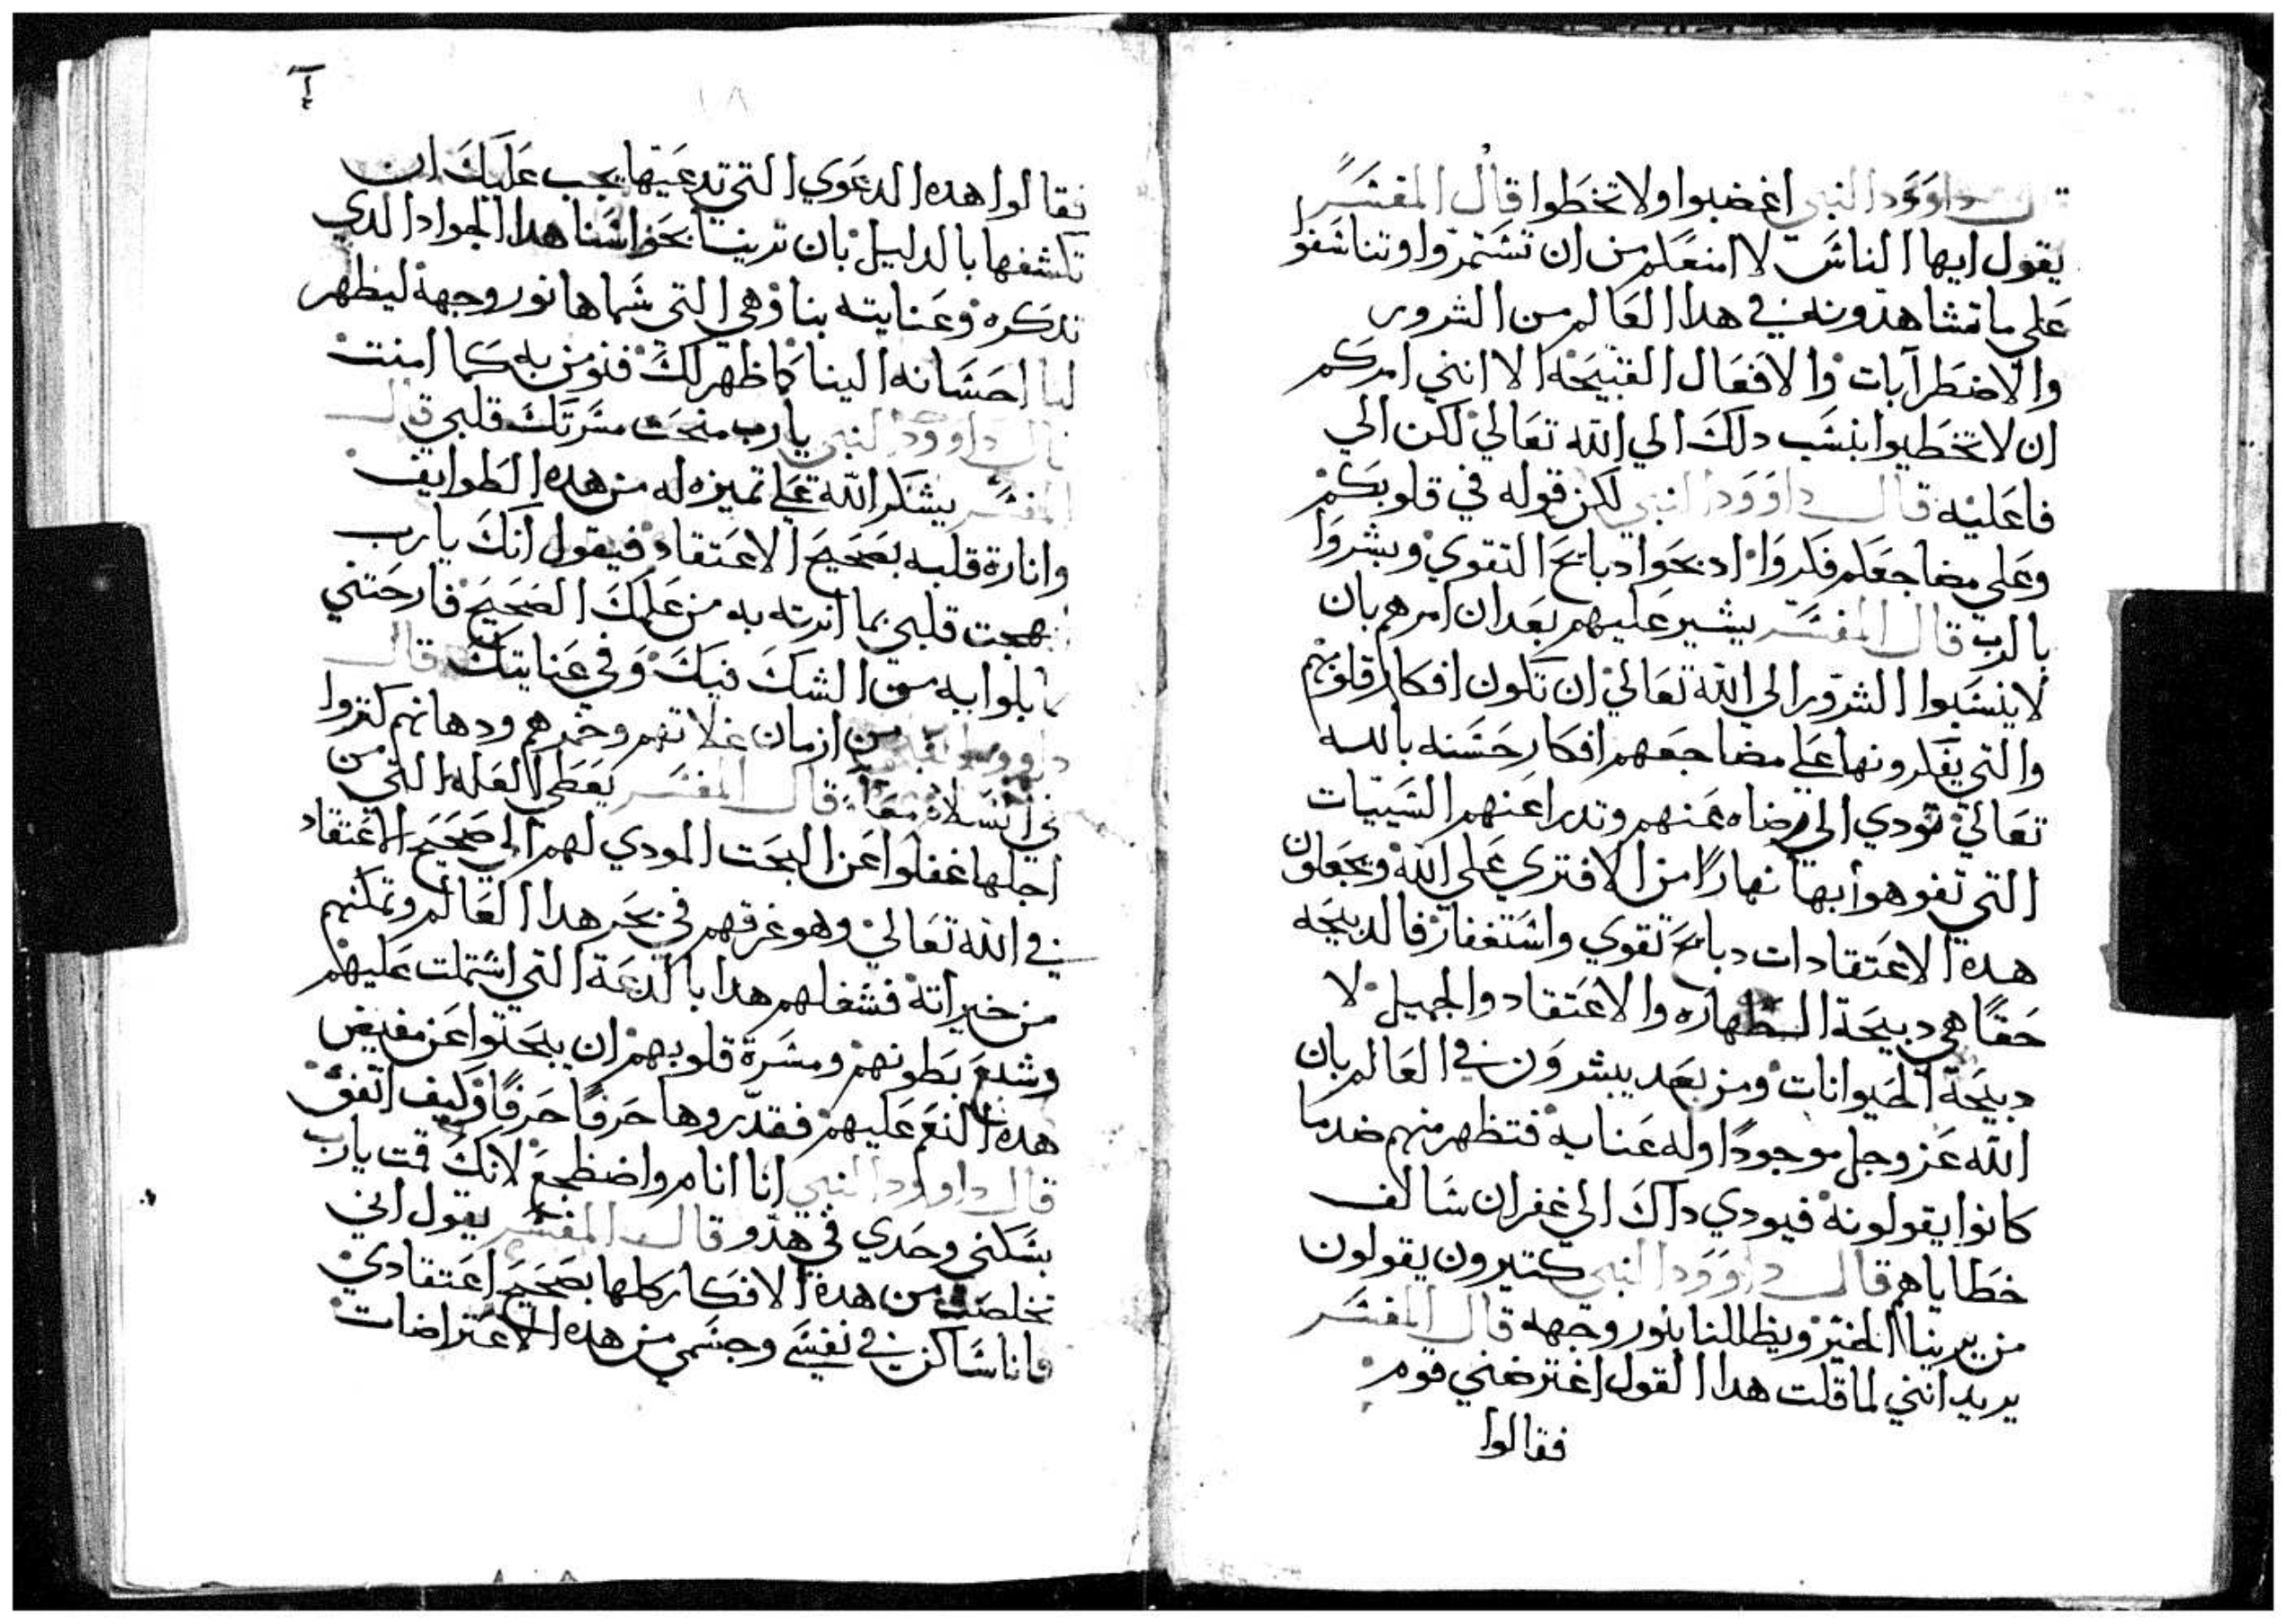 قال داوود النبي اغضبوا ولا تخطوا قال المفسر
يقول ايها الناس لا امنعكم من ان تشتمروا وتتاسفوا
على ما تشاهدونه في هدا العالم من الشرور
والاضطرابات والافعال القبيحة الا انني امركم
ان لا تخطيوا بنسب دلك الي الله تعالي لكن الي
فاعليه قال داوود النبي لكن قوله في قلوبكم
وعلي مضاجعكم فكروا ادبحوا دبايح التقوي وبشروا
بالرب قال المفسر يشير عليهم بعد ان امرهم بان
لا ينسبوا الشرور الي الله تعالي ان تكون افكار قلوبهم
والتي يفكرونها علي مضاجعهم افكار حسنه بالله
تعالي تودي الي رضاه عنهم وتدرا عنهم السييات
التي تفوهوا بها نهارا من الافتري علي الله ويجعلون
هده الاعتقادات دبايح تقوي واستغفار فالدبيحه
حقا هي دبيحة الطهاره والاعتقاد والجميل لا
دبيحة الحيوانات ومن بعد يبشرون في العالم بان
الله عز وجل موجودا وله عنايه فتظهر منهم ضد ما
كانوا يقولونه فيودي داك الي غفران سالف
خطاياهم قال داوود النبي كتيرون يقولون
من يرينا الخير ويظللنا بنور وجهه قال المفسر
يريد انني لما قلت هدا القول اعترضني قوم
فقالوا
فقالوا هده الدعوي التي تدعيها يجب عليك ان
تكشفها بالدليل بان ترينا بحواسنا هدا الجواد الدي
تدكره وعنايته بنا وهي التي سماها نور وجهه ليظهر
لنا احسانه الينا كما ظهر لك فنومن به كما امنت
قال داوود النبي يا رب منحت مسرتك قلبي قال
المفسر يشكر الله علي تميزه له من هده الطوايف
وانارة قلبه بصحيح الاعتقاد فيقول انك يا رب
ابهجت قلبي بما انرته به من علمك الصحيح فارحتني
مما بلوا به من الشك فيك وفي عنايتك قال
داوود النبي من ازمان غلاتهم وخمرهم ودهانهم كتروا
في السلامة معا قال المفسر يعطي العله التي من
اجلها غفلوا عن البحت المودي لهم الي صحيح الاعتقاد
في الله تعالي وهو غرقهم في بحر هدا العالم وتمكنهم
من خيراته فشغلهم هدا بالدعة التي اشتملت عليهم
وشبع بطونهم ومسرة قلوبهم ان يبحتوا عن مفيض
هده النعم عليهم فقدروها حرفا حرفا وكيف اتفق
قال داوود النبي انا انام واضطجع لانك قمت يا رب
بسكني وحدي في هدو قال المفسر يقول اني
تخلصت من هده الافكار كلها بصحيح اعتقادي
فانا ساكن في نفسي وجسمي من هده الاعتراضات